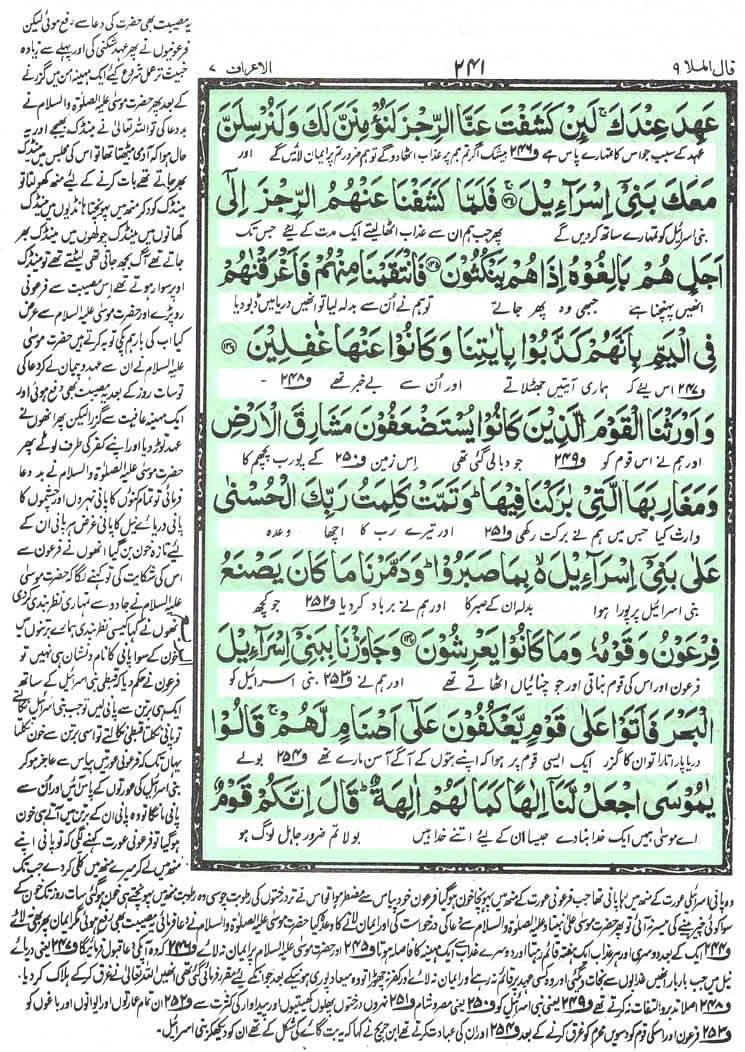 قال الملا ۹
۲۴۱
الاعراف ۷
عَهِدَ عِنْدَكَ ۚ لَئِنْ كَشَفْتَ عَنَّا الرِّجْزَ لَنُؤْمِنَنَّ لَكَ وَلَنُرْسِلَنَّ
عہد کے سبب جو اس کا تمہارے پاس ہے و۲۴۶ بیشک اگر تم ہم پر عذاب اٹھا دو گے تو ہم ضرور تم پر ایمان لائیں گے اور
مَعَكَ بَنِیْۤ اِسْرَآءِیْلَ ۚ۝۱۳۴ فَلَمَّا كَشَفْنَا عَنْهُمُ الرِّجْزَ اِلٰۤی
بنی اسرائیل کو تمہارے ساتھ کر دیں گے پھر جب ہم ان سے عذاب اٹھا لیتے ایک مدت کے لیئے جس تک
اَجَلٍ هُمْ بٰلِغُوْهُ اِذَا هُمْ یَنْكُثُوْنَ ۝۱۳۵ فَانْتَقَمْنَا مِنْهُمْ فَاَغْرَقْنٰهُمْ
انھیں پہنچنا ہے جبھی وہ پھر جاتے تو ہم نے اُن سے بدلہ لیا تو انھیں دریا میں ڈبو دیا
فِی الْیَمِّ بِاَنَّهُمْ كَذَّبُوْا بِاٰیٰتِنَا وَ كَانُوْا عَنْهَا غٰفِلِیْنَ ۝۱۳۶
و۲۴۷ اس لیئے کہ ہماری آیتیں جھٹلاتے اور اُن سے بے خبر تھے و۲۴۸ -
وَ اَوْرَثْنَا الْقَوْمَ الَّذِیْنَ كَانُوْا یُسْتَضْعَفُوْنَ مَشَارِقَ الْاَرْضِ
اور ہم نے اس قوم کو و۲۴۹ جو دبا لی گئی تھی اِس زمین و۲۵۰ کے پورب پچھم کا
وَ مَغَارِبَهَا الَّتِیْ بٰرَكْنَا فِیْهَا ؕ وَ تَمَّتْ كَلِمَتُ رَبِّكَ الْحُسْنٰی
وارث کیا جس میں ہم نے برکت رکھی و۲۵۱ اور تیرے رب کا اچھا وعدہ
عَلٰی بَنِیْۤ اِسْرَآءِیْلَ ۙ۬ بِمَا صَبَرُوْا ؕ وَ دَمَّرْنَا مَا كَانَ یَصْنَعُ
بنی اسرائیل پر پورا ہوا بدلہ ان کے صبر کا اور ہم نے برباد کر دیا و۲۵۲ جو کچھ
فِرْعَوْنُ وَ قَوْمُهٗ وَ مَا كَانُوْا یَعْرِشُوْنَ ۝۱۳۷ وَ جٰوَزْنَا بِبَنِیْۤ اِسْرَآءِیْلَ
فرعون اور اس کی قوم بناتی اور جو چنائیاں اٹھاتے تھے اور ہم نے و۲۵۳ بنی اسرائیل کو
الْبَحْرَ فَاَتَوْا عَلٰی قَوْمٍ یَّعْكُفُوْنَ عَلٰۤی اَصْنَامٍ لَّهُمْ ۚ قَالُوْا
دریا پار اتارا تو ان کا گزر ایک ایسی قوم پر ہوا کہ اپنے بتوں کے آگے آسن مارے تھے و۲۵۴ بولے
یٰمُوْسَی اجْعَلْ لَّنَاۤ اِلٰهًا كَمَا لَهُمْ اٰلِهَةٌ ؕ قَالَ اِنَّكُمْ قَوْمٌ
اے موسیٰ ہمیں ایک خدا بنا دے جیسا ان کے لیئے اتنے خدا ہیں بولا تم ضرور جاہل لوگ ہو
یہ مصیبت بھی حضرت کی دعا سے رفع ہوئی لیکن
فرعونیوں نے پھر عہد شکنی کی اور پہلے سے زیادہ
خبیث تر عمل شروع کیئے ایک مہینہ امن میں گزرنے
کے بعد پھر حضرت موسیٰ علیہ الصلوٰۃ والسلام نے
بد دعا کی تو اللہ تعالیٰ نے مینڈک بھیجے اور یہ
حال ہوا کہ آدمی بیٹھتا تھا تو اس کی مجلس میں مینڈک
بھر جاتے تھے بات کرنے کے لیئے منھ کھولتا تو
مینڈک کود کر منھ میں پہونچتا ہانڈیوں میں مینڈک
کھانوں میں مینڈک چولھوں میں مینڈک بھر
جاتے تھے آگ بجھ جاتی تھی لیٹتے تھے تو مینڈک
اوپر سوار ہوتے تھے اس مصیبت سے فرعونی
رو پڑے اور حضرت موسیٰ علیہ السلام سے عرض
کیا اب کی بار ہم پکی توبہ کرتے ہیں حضرت موسیٰ
علیہ السلام نے ان سے عہد و پیمان لے کر دعا کی
تو سات روز کے بعد یہ مصیبت بھی دفع ہوئی اور
ایک مہینہ عافیت سے گزرا لیکن پھر انھوں نے
عہد توڑ دیا اور اپنے کفر کی طرف لوٹے پھر
حضرت موسیٰ علیہ الصلوٰۃ والسلام نے بد دعا
فرمائی تو تمام کنوؤں کا پانی نہروں اور چشموں کا
پانی دریائے نیل کا پانی غرض ہر پانی ان کے
لیئے تازہ خون بن گیا انھوں نے فرعون سے
اس کی شکایت کی تو کہنے لگا کہ حضرت موسیٰ
علیہ السلام نے جادو سے تمہاری نظر بندی کر دی
انھوں نے کہا کیسی نظر بندی ہمارے برتنوں میں
خون کے سوا پانی کا نام و نشان ہی نہیں تو
فرعون نے حکم دیا کہ قبطی بنی اسرائیل کے ساتھ
ایک ہی برتن سے پانی لیں تو جب بنی اسرائیل نکالتے
تو پانی نکلتا قبطی نکالتے تو اسی برتن سے خون نکلتا
یہاں تک کہ فرعونی عورتیں پیاس سے عاجز ہو کر
بنی اسرائیل کی عورتوں کے پاس آئیں اور اُن سے
پانی مانگا تو وہ پانی ان کے برتن میں آتے ہی خون
ہو گیا تو فرعونی عورت کہنے لگی کہ تو پانی اپنے
منھ میں لے کر میرے منھ میں کلی کر دے جب تک
وہ پانی اسرائیلی عورت کے منھ میں رہا پانی تھا جب فرعونی عورت کے منھ میں پہونچا خون ہو گیا فرعون خود پیاس سے مضطر ہوا تو اس نے تر درختوں کی رطوبت چوسی وہ رطوبت منھ میں پہونچتے ہی خون ہو گئی سات روز تک خون کے
سوا کوئی چیز پینے کی میسر نہ آئی تو پھر حضرت موسیٰ علیٰ نبینا وعلیہ الصلوٰۃ والسلام سے دعا کی درخواست کی اور ایمان لانے کا وعدہ کیا حضرت موسیٰ علیہ الصلوٰۃ والسلام نے دعا فرمائی یہ مصیبت بھی رفع ہوئی مگر ایمان پھر بھی نہ لائے
و۲۴۴ ایک کے بعد دوسری اور ہر عذاب ایک ہفتہ قائم رہتا اور دوسرے عذاب سے ایک مہینہ کا فاصلہ ہوتا و۲۴۵ اور حضرت موسیٰ علیہ السلام پر ایمان نہ لائے و۲۴۶ کہ وہ آپ کی دعا قبول فرمائے گا و۲۴۷ یعنی دریائے
نیل میں جب بار بار انھیں عذابوں سے نجات دی گئی اور وہ کسی عہد پر قائم نہ رہے اور ایمان نہ لائے اور کفر نہ چھوڑا تو وہ میعاد پوری ہونے کے بعد جو ان کے لیئے مقرر فرمائی گئی تھی انھیں اللہ تعالیٰ نے غرق کر کے ہلاک کر دیا۔
و۲۴۸ اصلا تدبر و التفات نہ کرتے تھے و۲۴۹ یعنی بنی اسرائیل کو و۲۵۰ یعنی مصر و شام و۲۵۱ نہروں درختوں پھلوں کھیتیوں اور پیداوار کی کثرت سے و۲۵۲ ان تمام عمارتوں اور ایوانوں اور باغوں کو
و۲۵۳ فرعون اور اسکی قوم کو دسویں محرم کو غرق کرنے کے بعد و۲۵۴ اور ان کی عبادت کرتے تھے ابن جریج نے کہا کہ یہ بت گائے کی شکل کے تھے ان کو دیکھ کر بنی اسرائیل۔